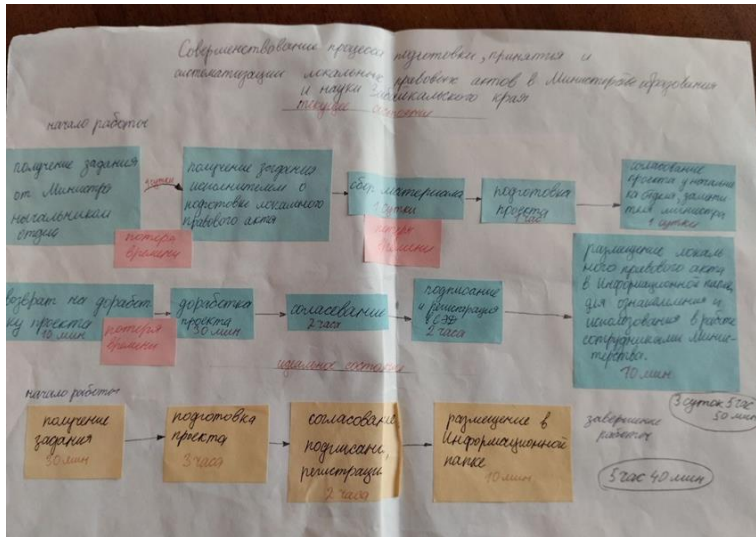 Совершенствование процесса подготовки, принятия и
систематизации локальных правовых актов в Министерстве образования
и науки Забайкальского края
текущее состояние
начало работы
получение задания
от Министра
начальником
отдела
потеря
времени
1 сутки
получение задания
исполнителем о
подготовке локального
правового акта
сбор материала
1 сутки
потеря
времени
подготовка
проекта
1 час
согласование
проекта у начальни
ка отдела, замести
теля министра
1 сутки
возврат на доработ
ку проекта
10 мин
потеря
времени
доработка
проекта
30 мин
согласование
2 часа
подписание
и регистрация
в СЭД
2 часа
размещение локаль
ного правового акта
в Информационной папке
для ознакомления и
использования в работе
сотрудниками Минис-
терства.
10 мин
3 суток 5 час
50 мин
идеальное состояние
начало работы
получение
задания
30 мин
подготовка
проекта
3 часа
согласование,
подписание,
регистрация
2 часа
размещение в
Информационной
папке
10 мин
завершение
работы
5 час 40 мин